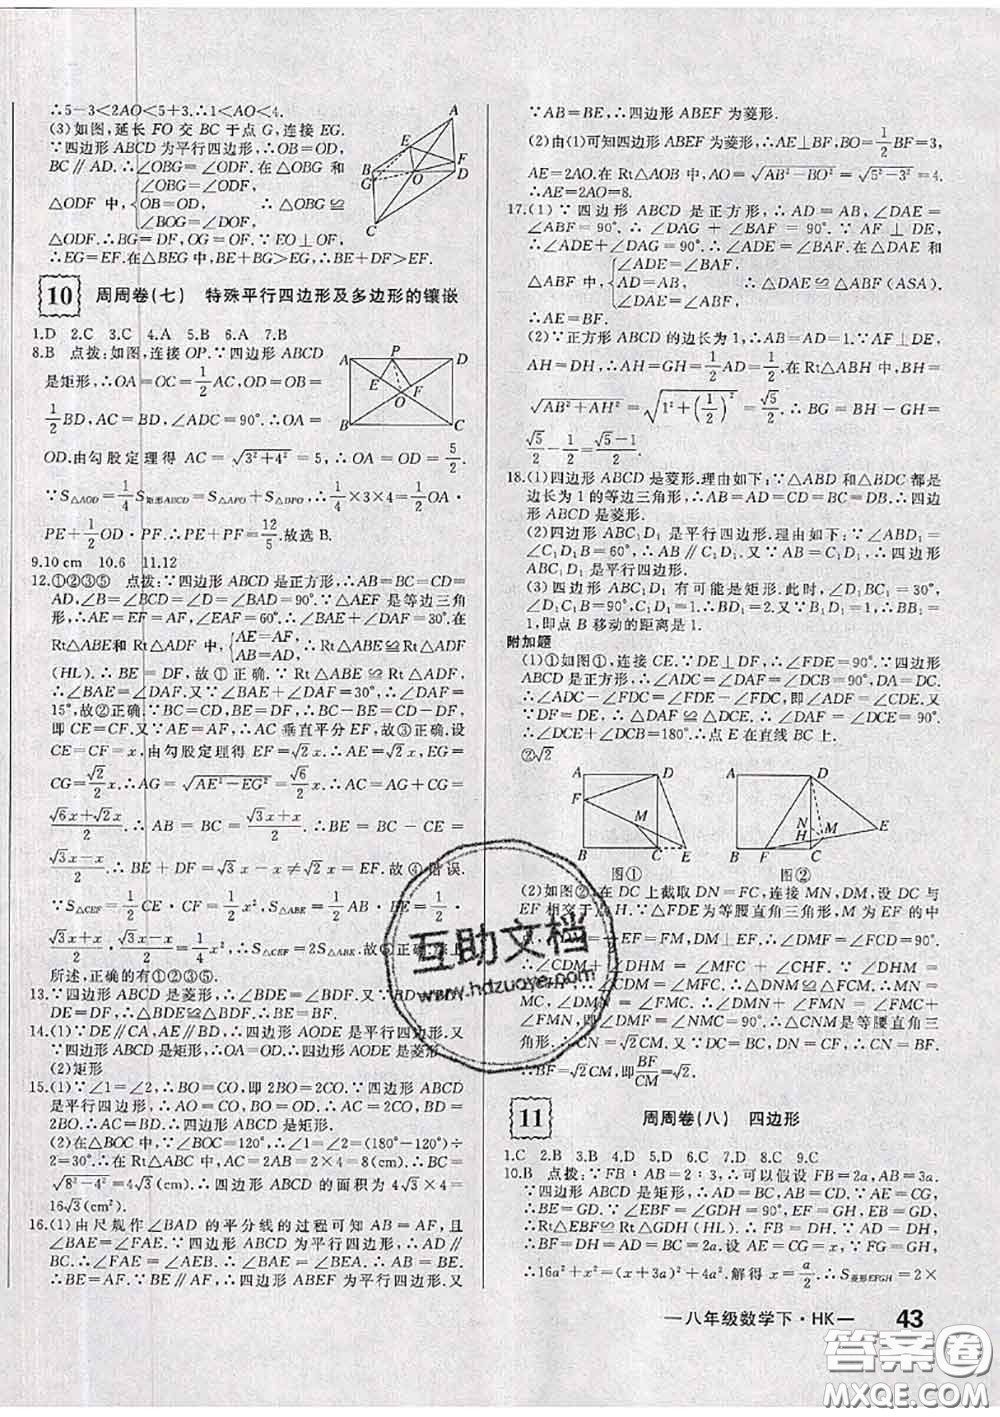 ∴5-3<2AO<5+3.∴1<AO<4.
(3)如图,延长 FO 交 BC 于点 G,连接 EG.
∵四边形 ABCD 为平行四边形,∴OB=OD,
BC∥AD.∴∠OBG=∠ODF.在△OBG 和
△ODF 中,{∠OBG=∠ODF, OB=OD, ∠BOG=∠DOF, ∴△OBG≌
△ODF.∴BG=DF,OG=OF.∵EO⊥OF,∴
EG=EF.在△BEG 中,BE+BG>EG,∴BE+DF>EF.
A
E
B
G
O
F
D
C
10 周周卷(七) 特殊平行四边形及多边形的镶嵌
1.D 2.C 3.C 4.A 5.B 6.A 7.B
8.B 点拨:如图,连接 OP.∵四边形 ABCD
是矩形,∴OA=OC=1/2AC,OB=OD=
1/2BD,AC=BD,∠ADC=90°.∴OA=
OD.由勾股定理得 AC=√(3²+4²)=5,∴OA=OD=5/2.
∵S△AOD=1/4S矩形ABCD=S△APO+S△DPO,∴1/4×3×4=1/2OA·
PE+1/2OD·PF.∴PE+PF=12/5.故选 B.
A P D
E F
O
B C
9.10 cm 10.6 11.12
12.①②③⑤ 点拨:∵四边形 ABCD 是正方形,∴AB=BC=CD=
AD,∠B=∠BCD=∠D=∠BAD=90°.∵△AEF 是等边三角
形,∴AE=EF=AF,∠EAF=60°.∴∠BAE+∠DAF=30°.在
Rt△ABE和 Rt△ADF 中,{AE=AF, AB=AD, ∴Rt△ABE≌Rt△ADF
(HL).∴BE=DF,故①正确.∵Rt△ABE≌Rt△ADF,
∴∠BAE=∠DAF.又∵∠BAE+∠DAF=30°,∴∠DAF=
15°,故②正确.∵BC=CD,BE=DF,∴BC-BE=CD-DF,
即 CE=CF.又∵AE=AF,∴AC 垂直平分 EF,故③正确.设
CE=CF=x,由勾股定理得 EF=√2x.∴AE=√2x,EG=
CG=√2/2x.∴AG=√(AE²-EG²)=√6/2x.∴AC=
(√6x+√2x)/2.∴AB=BC=(√3x+x)/2.∴BE=BC-CE=
(√3x-x)/2.∴BE+DF=√3x-x≠√2x=EF.故④错误.
∵S△CEF=1/2CE·CF=1/2x²,S△ABE=1/2AB·BE=1/2·
(√3x+x)/2·(√3x-x)/2=1/4x²,∴S△CEF=2S△ABE.故⑤正确.综上
所述,正确的有①②③⑤.
13.∵四边形 ABCD 是菱形,∴∠BDE=∠BDF.又∵BD=BD,
DE=DF,∴△BDE≌△BDF.∴BE=BF.
14.(1)∵DE∥CA,AE∥BD,∴四边形 AODE 是平行四边形.又
∵四边形 ABCD 是矩形,∴OA=OD.∴四边形 AODE 是菱形.
(2)矩形
15.(1)∵∠1=∠2,∴BO=CO,即 2BO=2CO.∵四边形 ABCD
是平行四边形,∴AO=CO,BO=OD.∴AC=2CO,BD=
2BO.∴AC=BD.∴四边形 ABCD 是矩形.
(2)在△BOC 中,∵∠BOC=120°,∴∠1=∠2=(180°-120°)÷
2=30°.∴在 Rt△ABC 中,AC=2AB=2×4=8(cm).∴BC=
√(8²-4²)=4√3(cm).∴四边形 ABCD 的面积为 4√3×4=
16√3(cm²).
16.(1)由尺规作∠BAD 的平分线的过程可知 AB=AF,且
∠BAE=∠FAE.∵四边形 ABCD 为平行四边形,∴AD∥
BC.∴∠FAE=∠AEB.∴∠BAE=∠AEB.∴AB=
BE.∴BE=FA.∴四边形 ABEF 为平行四边形.又
∵AB=BE,∴四边形 ABEF 为菱形.
(2)由(1)可知四边形 ABEF 为菱形,∴AE⊥BF,BO=1/2BF=3,
AE=2AO.在 Rt△AOB 中,AO=√(AB²-BO²)=√(5²-3²)=4.
∴AE=2AO=8.
17.(1)∵四边形 ABCD 是正方形,∴AD=AB,∠DAE=
∠ABF=90°.∴∠DAG+∠BAF=90°.∵AF⊥DE,
∴∠ADE+∠DAG=90°.∴∠ADE=∠BAF.在△DAE 和
△ABF 中,{∠ADE=∠BAF, AD=AB, ∠DAE=∠ABF, ∴△DAE≌△ABF(ASA).
∴AE=BF.
(2)∵正方形 ABCD 的边长为 1,∴AD=AB=1.∵AF⊥DE,
AH=DH,∴AH=GH=1/2AD=1/2.在 Rt△ABH 中,BH=
√(AB²+AH²)=√(1²+(1/2)²)=√5/2.∴BG=BH-GH=
√5/2-1/2=(√5-1)/2.
18.(1)四边形 ABCD 是菱形.理由如下:∵△ABD 和△BDC 都是
边长为 1 的等边三角形,∴AB=AD=CD=BC=DB.∴四边
形 ABCD 是菱形.
(2)四边形 ABC₁D₁ 是平行四边形.理由如下:∵∠ABD₁=
∠C₁D₁B=60°,∴AB∥C₁D₁.又∵AB=C₁D₁,∴四边形
ABC₁D₁ 是平行四边形.
(3)四边形 ABC₁D₁ 有可能是矩形.此时,∠ABC₁=90°,
∠D₁C₁B₁=30°,C₁D₁=1,∴BD₁=2.又∵B₁D₁=1,∴BB₁=
1,即点 B 移动的距离是 1.
附加题
(1)①如图①,连接 CE.∵DE⊥DF,∴∠FDE=90°.∵四边形
ABCD 是正方形,∴∠ADC=∠DAF=∠DCB=90°,DA=DC.
∴∠ADC-∠FDC=∠FDE-∠FDC,即∠ADF=∠CDE.又
∵DF=DE,∴△DAF≌△DCE.∴∠DAF=∠DCE=90°.
∴∠DCE+∠DCB=180°.∴点 E 在直线 BC 上.
②√2
A D
F
M
B C E
图①
A D
N
H M
E
B F C
图②
(2)如图②,在 DC 上截取 DN=FC,连接 MN,DM,设 DC 与
EF 相交于点 H.∵△FDE为等腰直角三角形,M 为 EF 的中
∴∠CDM+∠DHM=∠MFC+∠CHF.∵∠DHM=
∴△CNM是等腰直角三
角形.∴CN=√2CM.又∵DN=CF,∴CN=BF.
∴BF=√2CM,即BF/CM=√2.
11 周周卷(八) 四边形
1.C 2.B 3.B 4.D 5.D 6.C 7.D 8.C 9.C
10.B 点拨:∵FB∶AB=2∶3,∴可以假设 FB=2a,AB=3a.
∵四边形 ABCD 是矩形,∴AD=BC,AB=CD.∵AE=CG,
∴BE=DG.∵∠EBF=∠GDH=90°,EF=GH,
∴Rt△EBF≌Rt△GDH(HL).∴FB=DH.∵AD⊥DH,
∴BF=DH=AD=BC=2a.设 AE=CG=x.∵FG=EF,
∴16a²+x²=(x+3a)²+4a².解得 x=a/2.∴S菱形EFGH=2×
互助文档
www.hdzuoye.com
—八年级数学下·HK— 43
答案圈
MXQE.COM